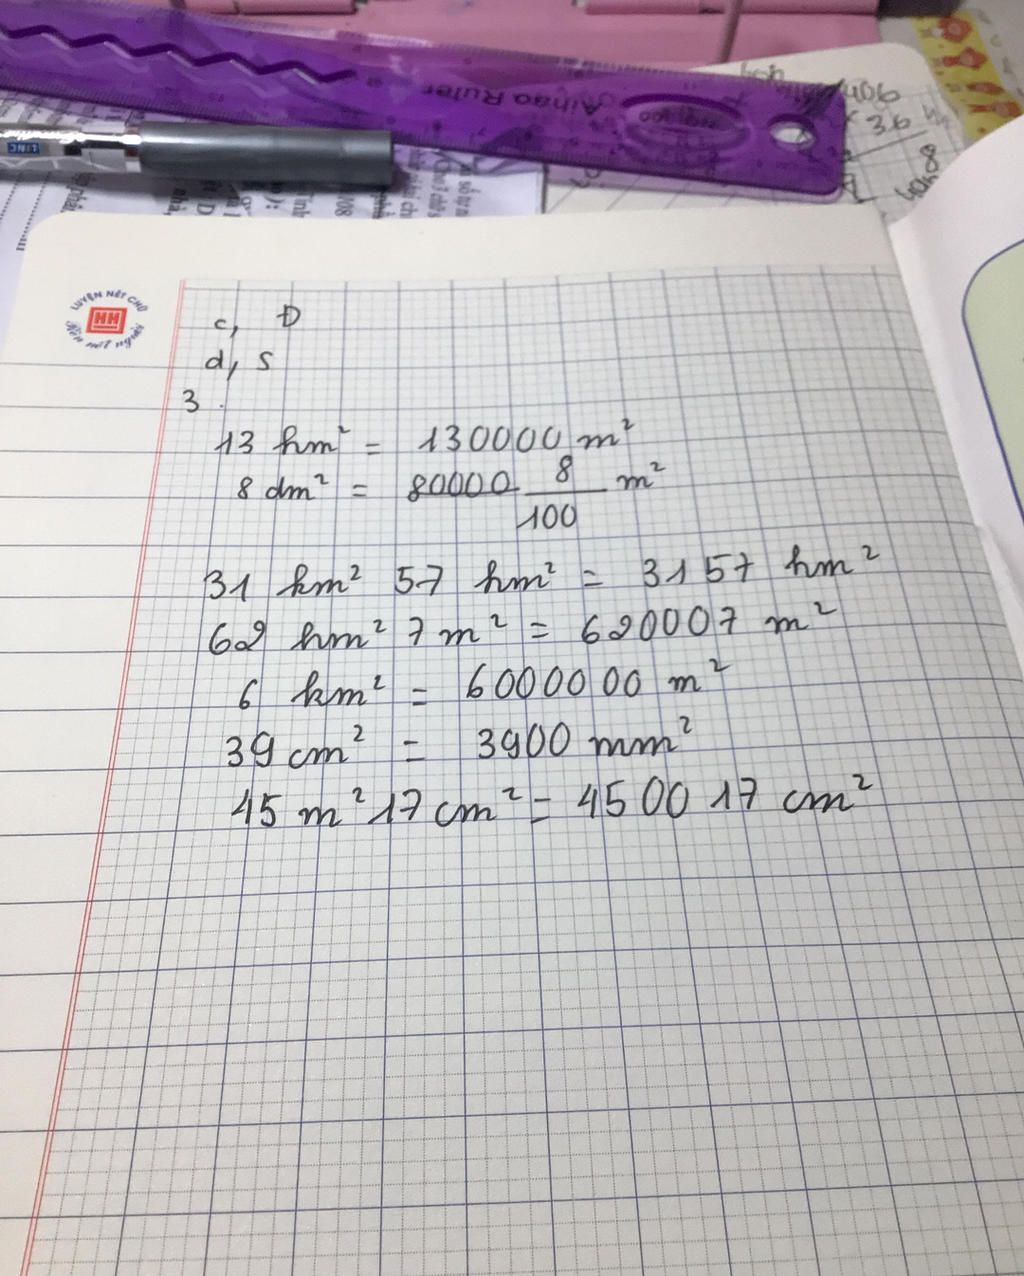 Aihao Ruler
LINC
36
LUYỆN NÉT CHỮ
HH
Rèn nết người
c, Đ
d, S
3.
13 hm² = 130000 m²
8 dm² = 80000 8/100 m²
31 km² 57 hm² = 3157 hm²
62 hm² 7 m² = 620007 m²
6 km² = 6000000 m²
39 cm² = 3900 mm²
45 m² 17 cm² = 450017 cm²